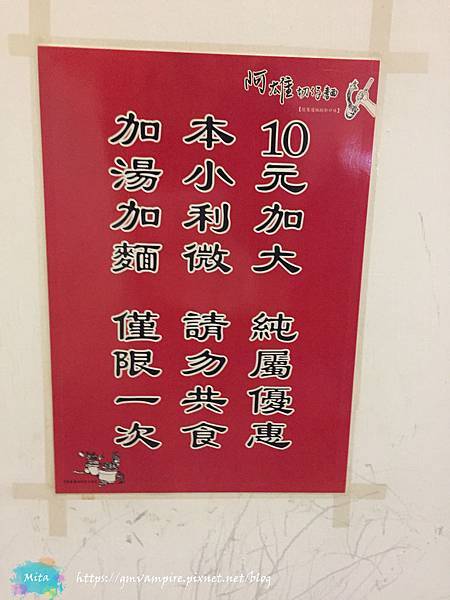 阿雄切仔麵
10元加大 純屬優惠
本小利微 請勿共食
加湯加麵 僅限一次
Mita
https://gmvampire.pixnet.net/blog